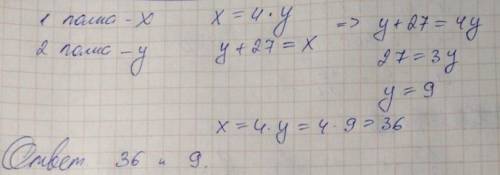 1 полка - x x = 4 · y => y + 27 = 4y
2 полка - y y + 27 = x 27 = 3y
y = 9
x = 4 · y = 4 · 9 = 36
Ответ 36 и 9.